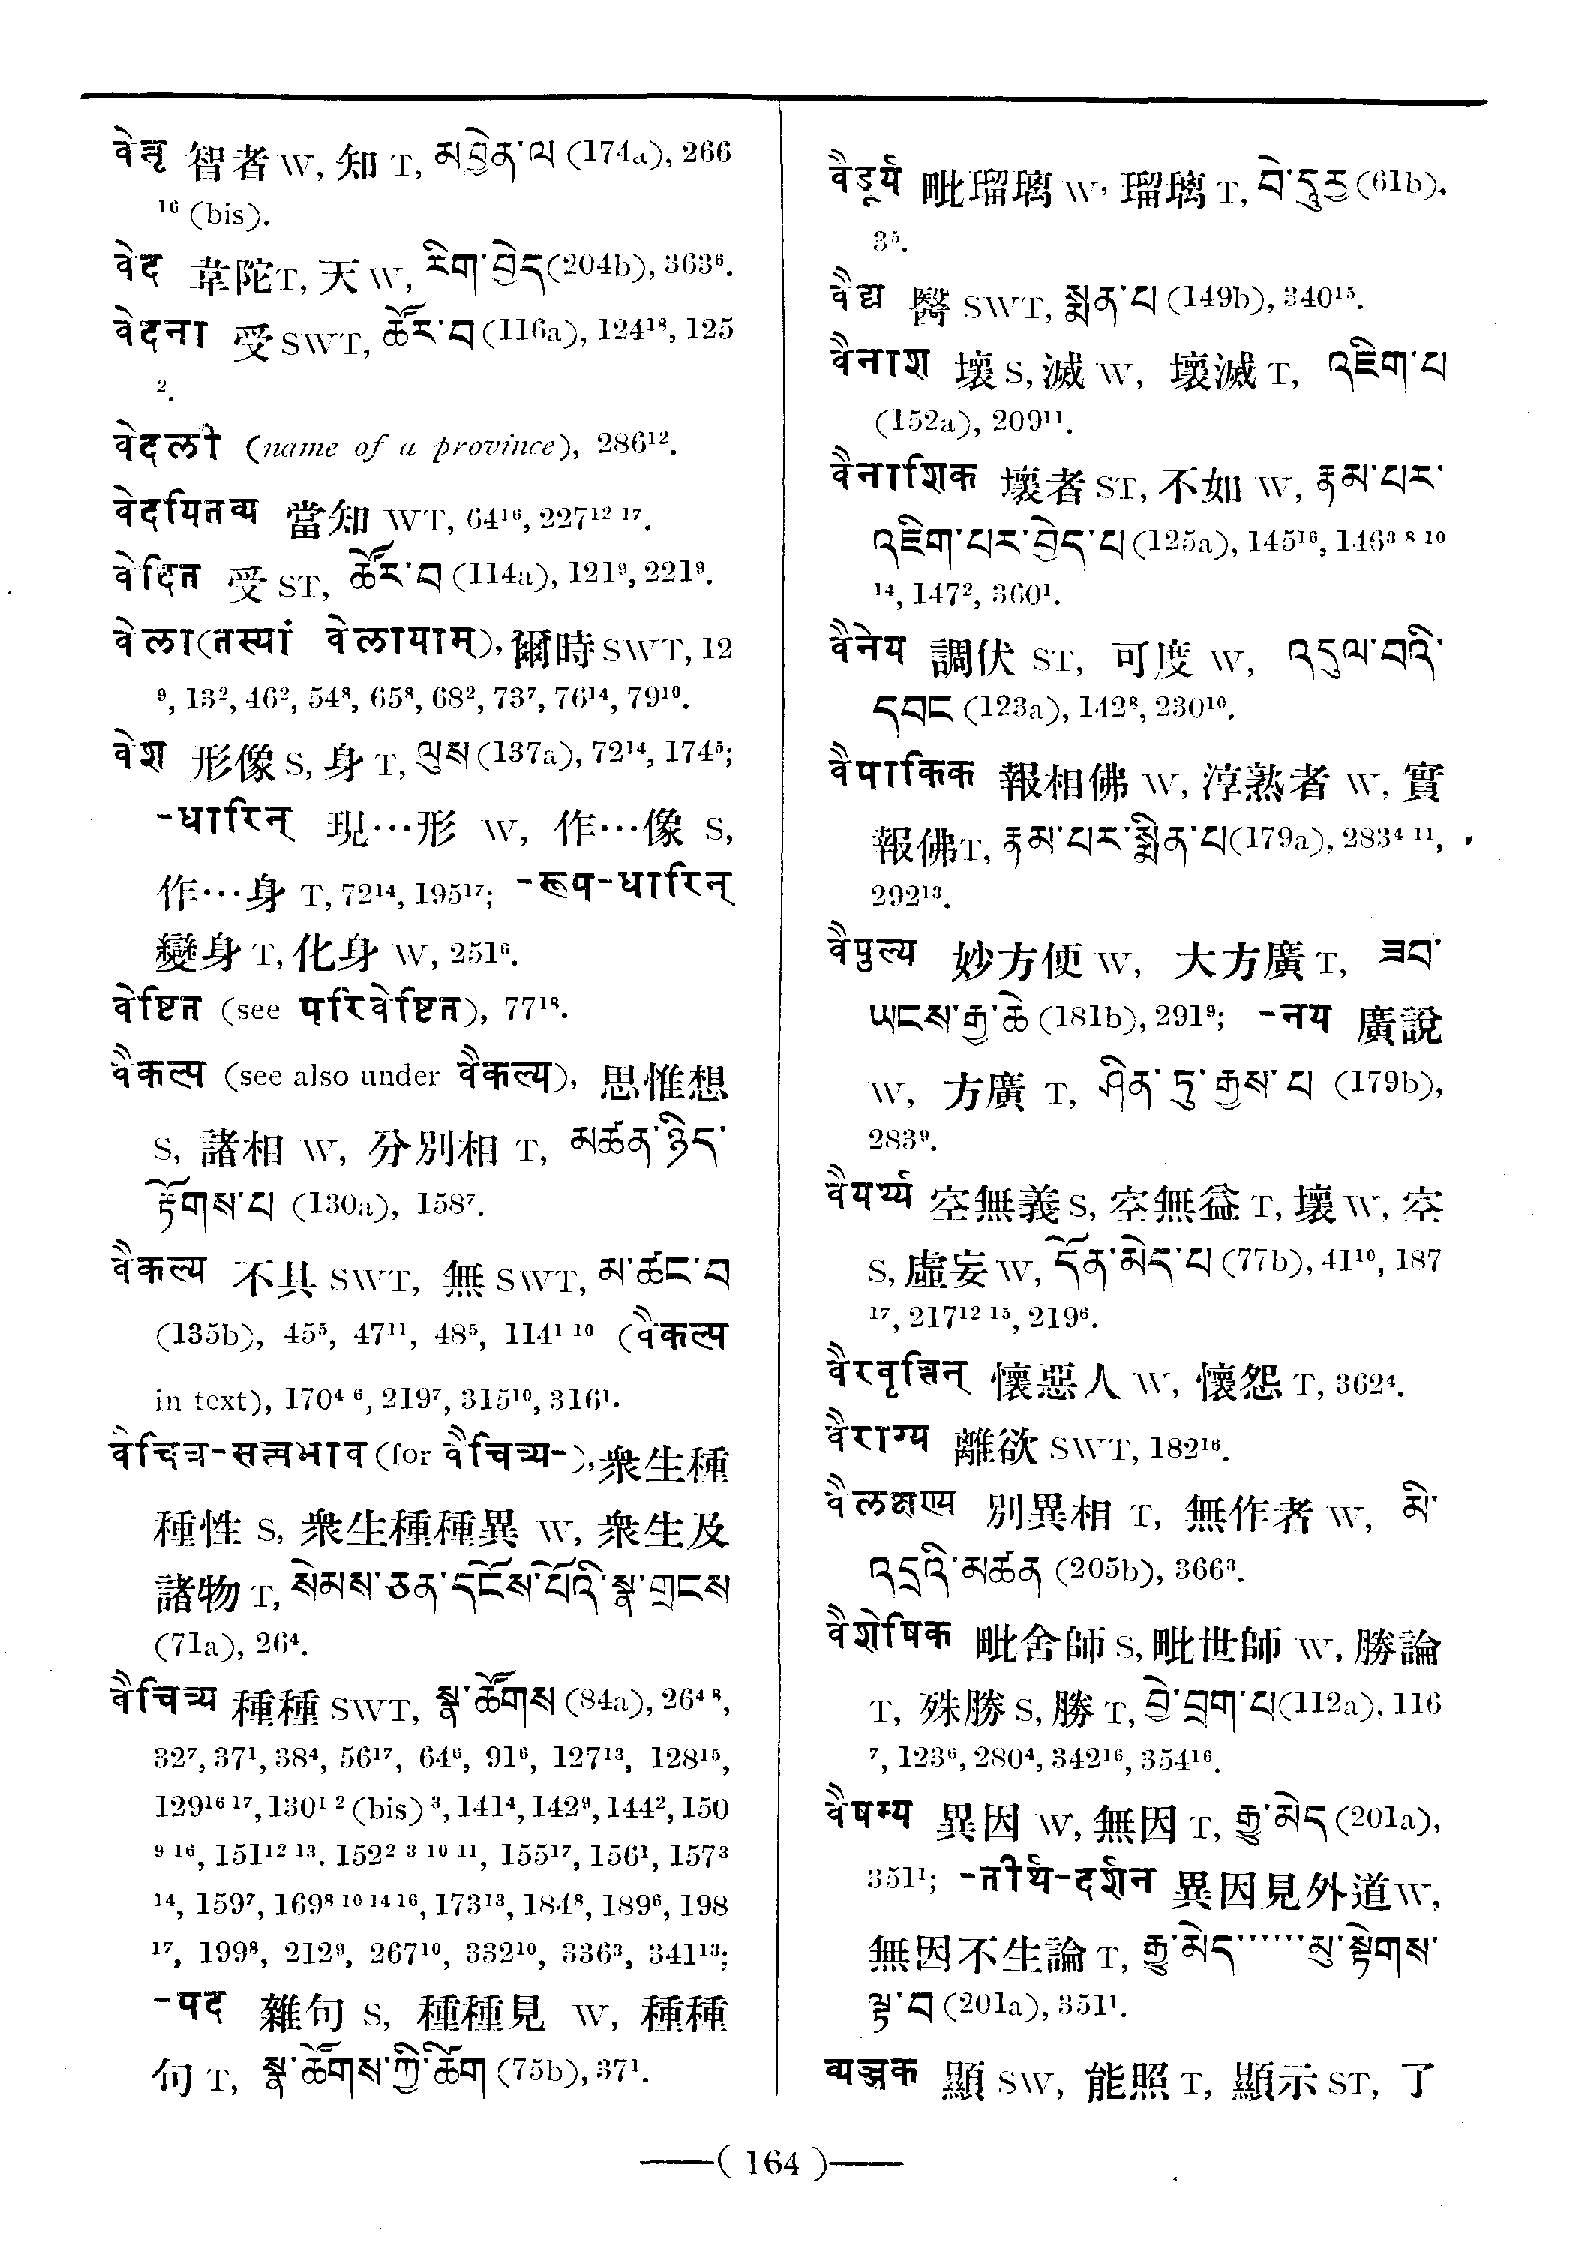 वेत्तृ 智者 W, 知 T, མཁྱེན་ལ (174a), 266
¹⁶ (bis).
वेद 韋陀T, 天W, རིག་བྱེད(204b), 363⁶.
वेदना 受SWT, ཚོར་བ(116a), 124¹⁸, 125
².
वेदली (name of a province), 286¹².
वेदयितव्य 當知 WT, 64¹⁶, 227¹² ¹⁷.
वेदित 受 ST, ཚོར་བ (114a), 121⁹, 221⁹.
वेला(तस्यां वेलायाम्), 爾時SWT, 12
⁹, 13², 46², 54⁸, 65⁸, 68², 73⁷, 76¹⁴, 79¹⁰.
वेश 形像 S, 身 T, ལུས(137a), 72¹⁴, 174⁵;
-धारिन् 現…形 W, 作…像 S,
作…身 T, 72¹⁴, 195¹⁷; -रूप-धारिन्
變身 T, 化身 W, 251⁶.
वेष्टित (see परिवेष्टित), 77¹⁸.
वैकल्प (see also under वैकल्य), 思惟想
S, 諸相 W, 分別相 T, མཚན་ཉིད་
རྟོགས་པ (130a), 158⁷.
वैकल्य 不具 SWT, 無 SWT, མ་ཚང་བ
(135b), 45⁵, 47¹¹, 48⁵, 114¹ ¹⁰ (वैकल्प
in text), 170⁴ ⁶, 219⁷, 315¹⁰, 316¹.
वेचित्र-सत्त्वभाव (for वैचित्र्य-), 衆生種
種性 S, 衆生種種異 W, 衆生及
諸物 T, སེམས་ཅན་དངོས་པོའི་སྣ་གྲངས
(71a), 26⁴.
वैचित्र्य 種種 SWT, སྣ་ཚོགས (84a), 26⁴ ⁸,
32⁷, 37¹, 38⁴, 56¹⁷, 64⁶, 91⁶, 127¹³, 128¹⁵,
129¹⁶ ¹⁷, 130¹ ² (bis) ³, 141⁴, 142⁹, 144², 150
⁹ ¹⁶, 151¹² ¹³, 152² ³ ¹⁰ ¹¹, 155¹⁷, 156¹, 157³
¹⁴, 159⁷, 169⁸ ¹⁰ ¹⁴ ¹⁶, 173¹³, 184⁸, 189⁶, 198
¹⁷, 199⁸, 212⁹, 267¹⁰, 332¹⁰, 336³, 341¹³;
-पद 雜句 S, 種種見 W, 種種
句 T, སྣ་ཚོགས་ཀྱི་ཚིག (75b), 37¹.
वैडूर्य 毗瑠璃 W, 瑠璃 T, བེ་དུརྱ (61b),
3⁵.
वैद्य 醫 SWT, སྨན་པ (149b), 340¹⁵.
वैनाश 壞 S, 滅 W, 壞滅 T, འཇིག་པ
(152a), 209¹¹.
वैनाशिक 壞者 ST, 不如 W, རྣམ་པར་
འཇིག་པར་བྱེད་པ (125a), 145¹⁶, 146³ ⁸ ¹⁰
¹⁴, 147², 360¹.
वैनेय 調伏 ST, 可度 W, འདུལ་བའི་
དབང (123a), 142⁸, 230¹⁰.
वैपाकिक 報相佛 W, 淳熟者 W, 實
報佛T, རྣམ་པར་སྨིན་པ(179a), 283⁴ ¹¹,
292¹³.
वैपुल्य 妙方便 W, 大方廣 T, ཟབ་
ཡངས་རྒྱ་ཆེ (181b), 291⁹; -नय 廣說
W, 方廣 T, ཤིན་ཏུ་རྒྱས་པ (179b),
283⁹.
वैयर्थ्य 空無義 S, 空無益 T, 壞 W, 空
S, 虛妄 W, དོན་མེད་པ (77b), 41¹⁰, 187
¹⁷, 217¹² ¹⁵, 219⁶.
वैरवृत्तिन् 懷惡人 W, 懷怨 T, 362⁴.
वैराग्य 離欲 SWT, 182¹⁶.
वैलक्षण्य 別異相 T, 無作者 W, མི་
འདྲའི་མཚན (205b), 366³.
वैशेषिक 毗舍師 S, 毗世師 W, 勝論
T, 殊勝 S, 勝 T, བྱེ་བྲག་པ(112a), 116
⁷, 123⁶, 280⁴, 342¹⁶, 354¹⁶.
वैषम्य 異因 W, 無因 T, རྒྱུ་མེད (201a),
351¹; -तीर्थ-दर्शन 異因見外道W,
無因不生論 T, རྒྱུ་མེད……མུ་སྟེགས་
ལྟ་བ (201a), 351¹.
व्यञ्जक 顯 SW, 能照 T, 顯示 ST, 了
—( 164 )—